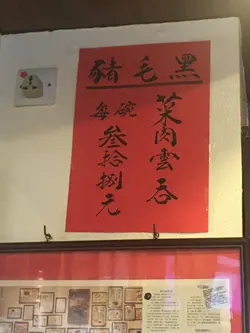 黑毛豬
菜肉雲吞
每碗
叁拾捌元